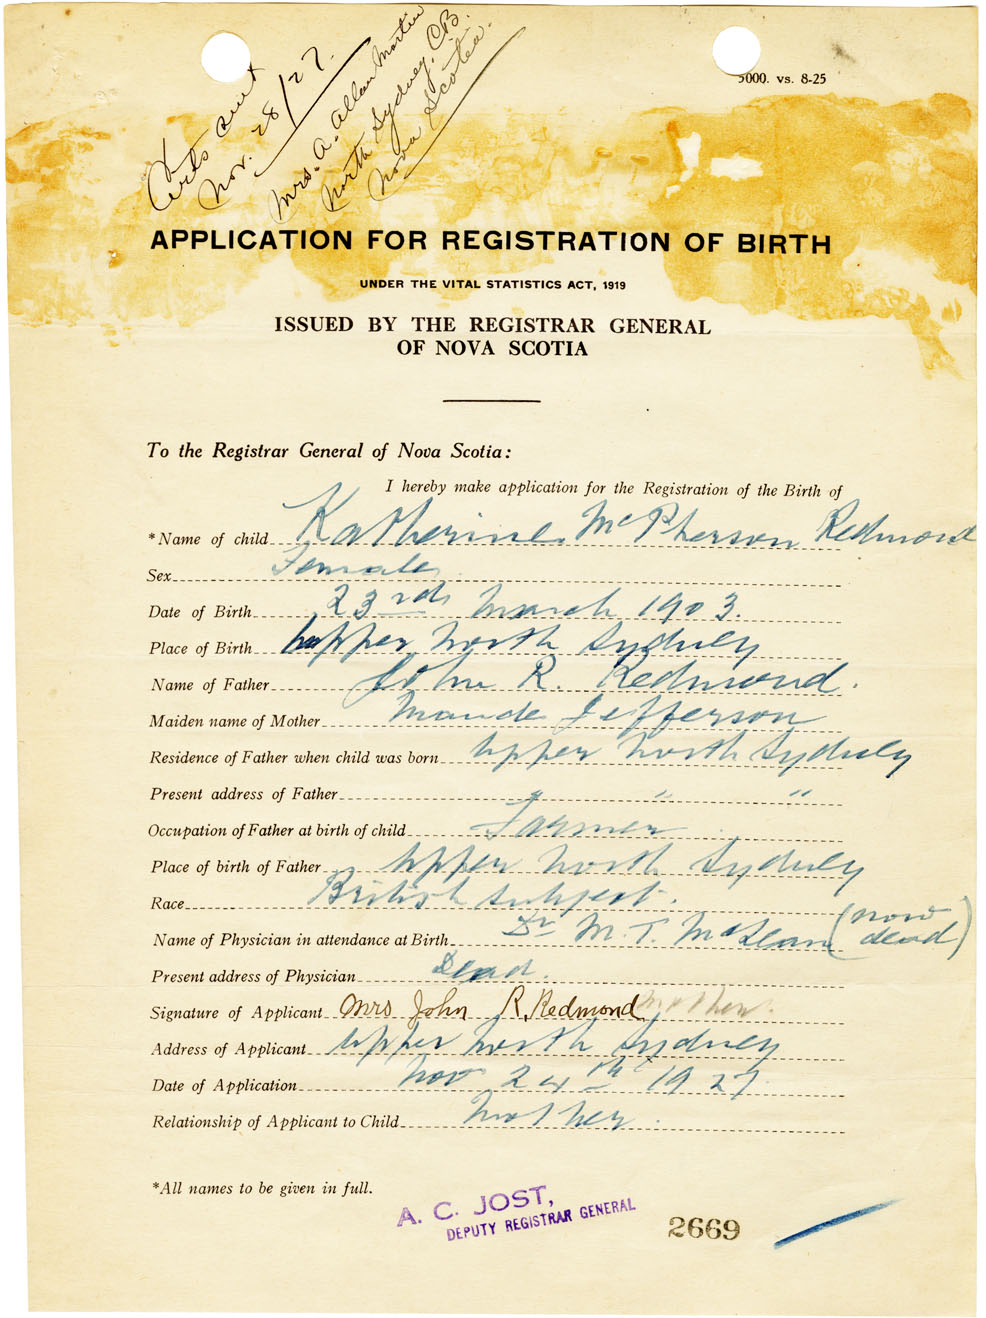 Certs sent
Nov. 28/27.
Mrs. A. Allan Martin
North Sydney, C.B.
Nova Scotia.
5000. vs. 8-25
APPLICATION FOR REGISTRATION OF BIRTH
UNDER THE VITAL STATISTICS ACT, 1919
ISSUED BY THE REGISTRAR GENERAL
OF NOVA SCOTIA
To the Registrar General of Nova Scotia:
I hereby make application for the Registration of the Birth of
*Name of child Katherine McPherson Redmond
Sex Female
Date of Birth 23rd March 1903.
Place of Birth Upper North Sydney
Name of Father John R. Redmond.
Maiden name of Mother Maude Jefferson
Residence of Father when child was born Upper North Sydney
Present address of Father " " "
Occupation of Father at birth of child Farmer
Place of birth of Father Upper North Sydney
Race British subject.
Name of Physician in attendance at Birth Dr M. T. McLean (now dead)
Present address of Physician Dead.
Signature of Applicant Mrs John R. Redmond mother.
Address of Applicant Upper North Sydney
Date of Application Nov 24th 1927.
Relationship of Applicant to Child Mother.
*All names to be given in full.
A. C. JOST,
DEPUTY REGISTRAR GENERAL
2669